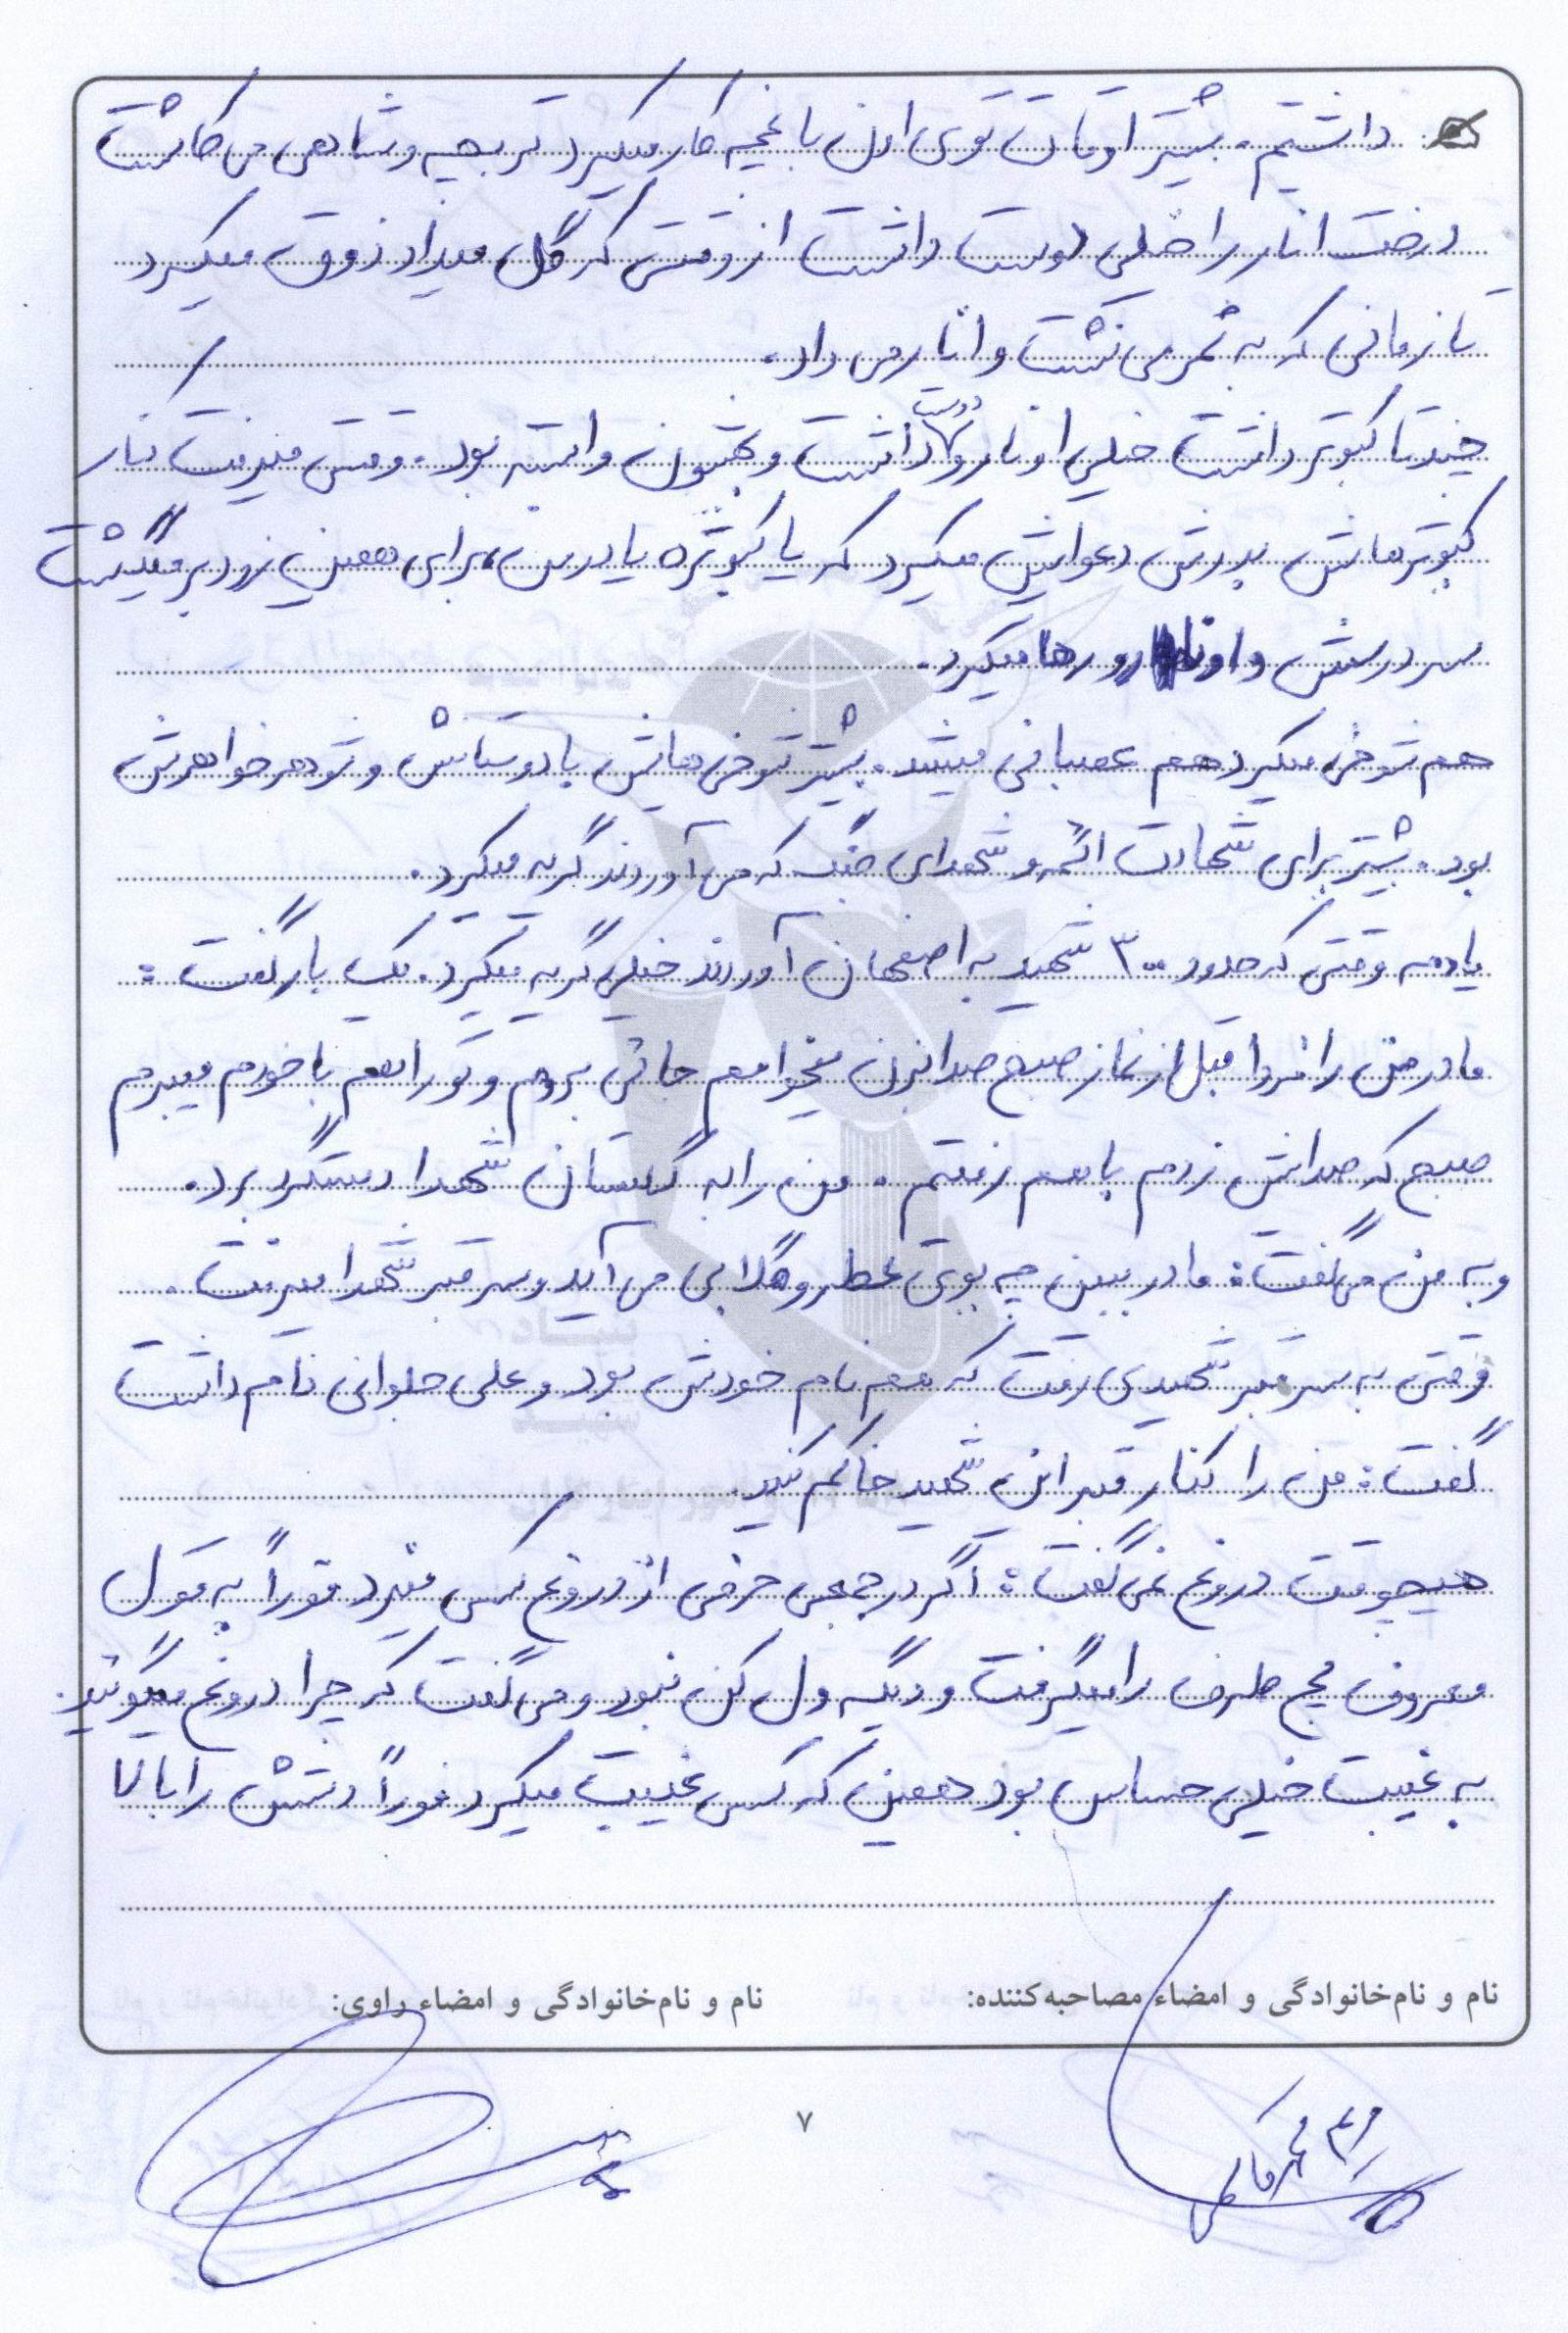 داشتیم. بیشتر اوقات توی اون باغچه کار میکرد تربچه و شاهی می کاشت
درخت انار را خیلی دوست داشت از وقتی که گل میداد ذوق میکرد
تا زمانی که به ثمر می نشست و انار می داد.
چندتا کبوتر داشت خیلی اونا رو دوست داشت و بهشون وابسته بود. وقتی میرفت کنار
کبوترهاش پدرش دعواش میکرد که یا کبوتره یا درس، برای همین زود برمیگشت
سر درسش و اونا رو رها میکرد.
هم شوخی میکرد هم عصبانی میشد. بیشتر شوخی هایش با دوستانش و شوهر خواهرش
بود. بیشتر برای شهادت ائمه و شهدای جنگ که می آوردند گریه میکرد.
یادمه وقتی که حدود ۳۰۰ شهید به اصفهان آوردند خیلی گریه میکرد. یک بار گفت:
مادر من را فردا قبل از نماز صبح صدا بزن میخواهم جائی بروم و تو را هم با خودم میبرم
صبح که صدایش زدم با هم رفتیم. من را به گلستان شهدا دستگرد برد.
و به من می گفت: مادر ببین چه بوی عطر و گلابی می آید و سر قبر شهدا میرفت.
وقتی به سر قبر شهیدی رفت که هم نام خودش بود و علی حلوانی نام داشت
گفت: من را کنار قبر این شهید خاکم کنید.
هیچوقت دروغ نمی گفت: اگر در جمعی حرفی از دروغ کسی میزد فوراً به قول
معروف مچ طرف را میگرفت و دیگه ول کن نبود و می گفت که چرا دروغ میگوئید.
به غیبت خیلی حساس بود همین که کسی غیبت میکرد فوراً دستش را بالا
نام و نام‌خانوادگی و امضاء مصاحبه‌کننده:
نام و نام‌خانوادگی و امضاء راوی:
۷